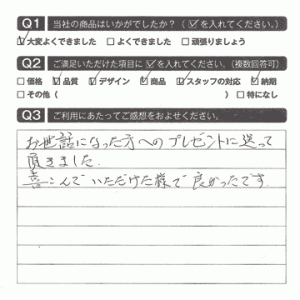 Q1 当社の商品はいかがでしたか？（☑を入れてください。）
☑大変よくできました □よくできました □頑張りましょう
Q2 ご満足いただけた項目に☑を入れてください。（複数回答可）
□価格 ☑品質 ☑デザイン ☑商品 ☑スタッフの対応 ☑納期
□その他（ ） □特になし
Q3 ご利用にあたってご感想をおよせください。
お世話になった方へのプレゼントに送って
頂きました。
喜こんでいただけた様で良かったです。